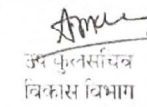 उप कुलसचिव
विकास विभाग